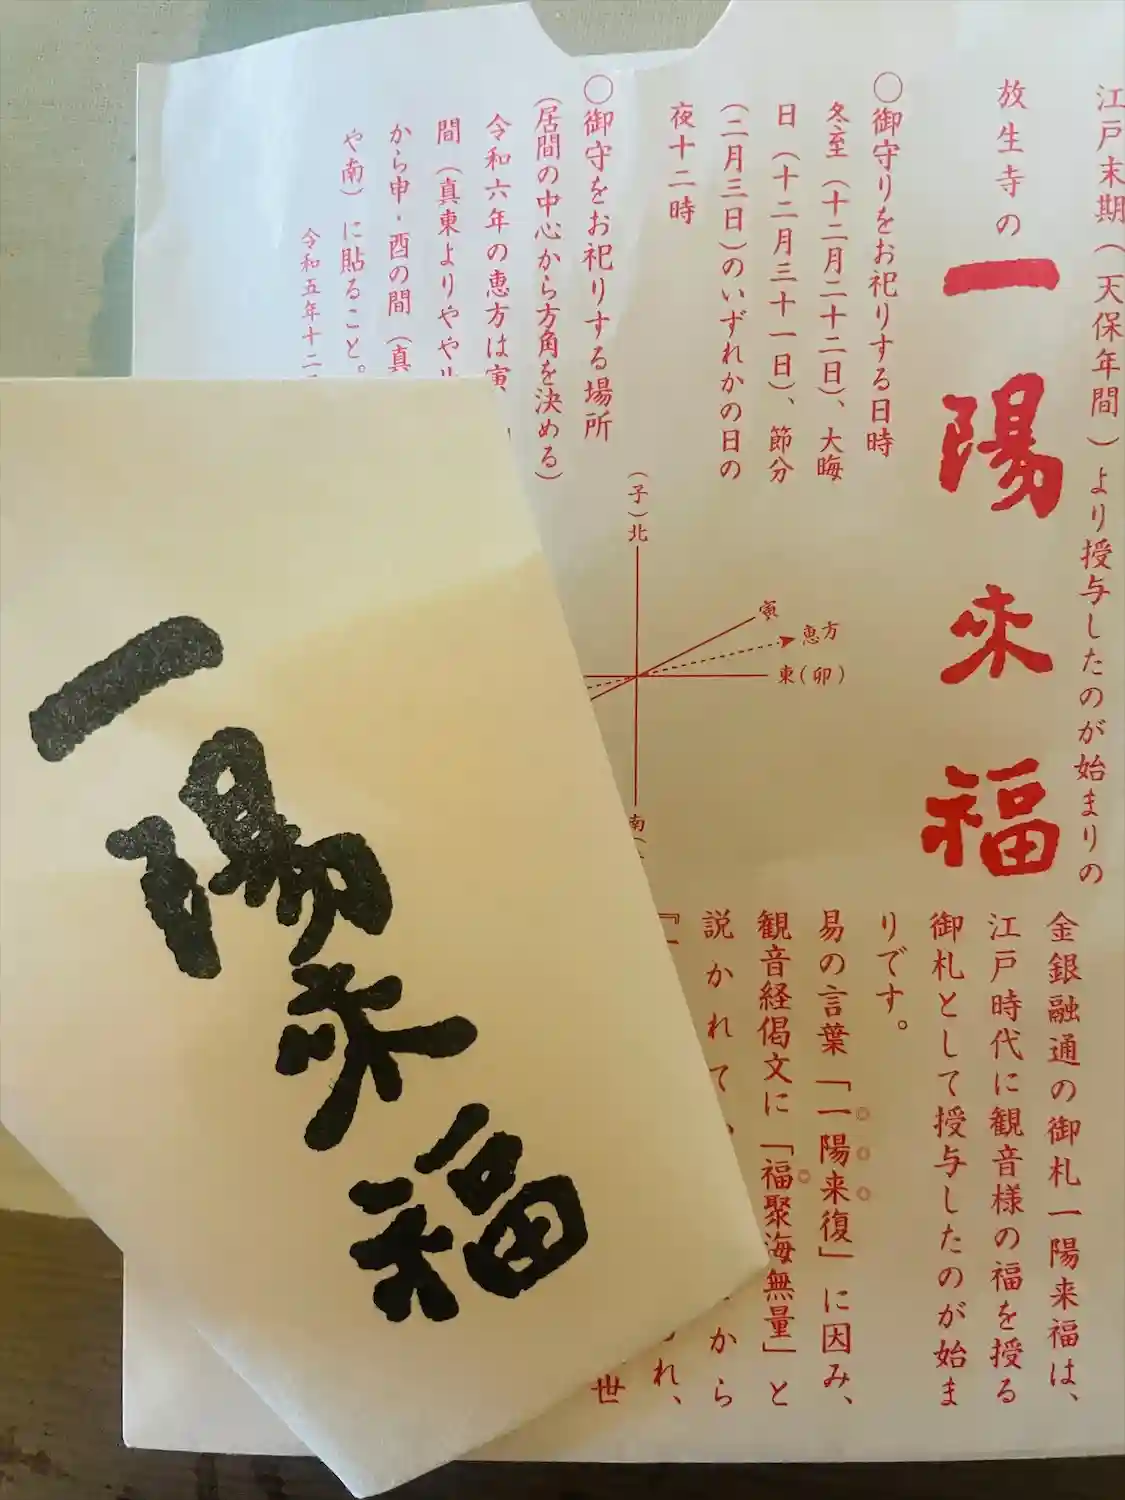 江戸末期(天保年間)より授与したのが始まりの
放生寺の
一陽来福
○御守りをお祀りする日時
冬至(十二月二十二日)、大晦
日(十二月三十一日)、節分
(二月三日)のいずれかの日の
夜十二時
○御守をお祀りする場所
(居間の中心から方角を決める)
令和六年の恵方は寅
間(真東よりやや北
から申・酉の間(真
や南)に貼ること。
令和五年十二
(子)北
寅
恵方
東(卯)
南(
金銀融通の御札一陽来福は、
江戸時代に観音様の福を授る
御札として授与したのが始ま
りです。
易の言葉「一陽来復」に因み、
観音経偈文に「福聚海無量」と
説かれて、
から
れ、
世
一陽来福